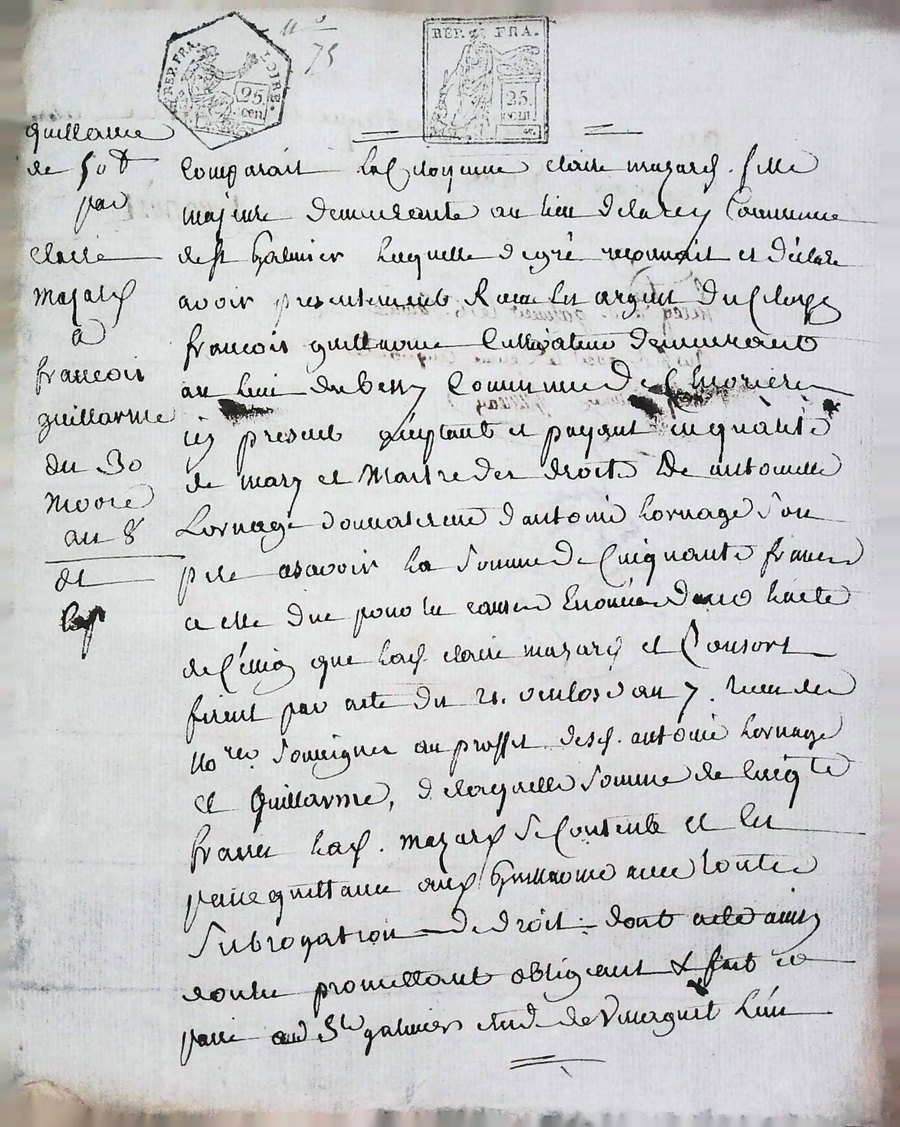 nº
75
REP. FRA.
LOIRE.
25.
cen
REP. FRA.
25.
CENT
quittance
de 50#
par
claire
mazard
a
francois
guillarme
du 30
nivose
an 8
Comparait la Citoyenne claire mazard fille
majeure demeurante au lieu delarey Commune
de st galmier laquelle de gré reconnait et déclare
avoir presentement Receu les argent du Citoyen
francois guillarme Cultivateur demeurant
au lieu du bessy Commune de
icy present acceptant et payant en qualité
de mary et Maitre des droits de antoinette
Lornage donnataire d'antoine Lornage son
pere asavoir la somme de Cinquante francs
a elle due pour les causes Enoncées dans lacte
de que lad. claire mazard et Consort
firent par acte du 21. ventose an 7. receu des
No.res soussignes au proffit desd. antoine Lornage
et Guillarme, de laquelle somme de Cinqte
francs lad. mazard se Contente et les
passe quittance aud guillarme avec toute
Subrogation de droit: dont acte ainsy
voulu promettant obligeant & fait et
passé aud St galmier etude de l'un